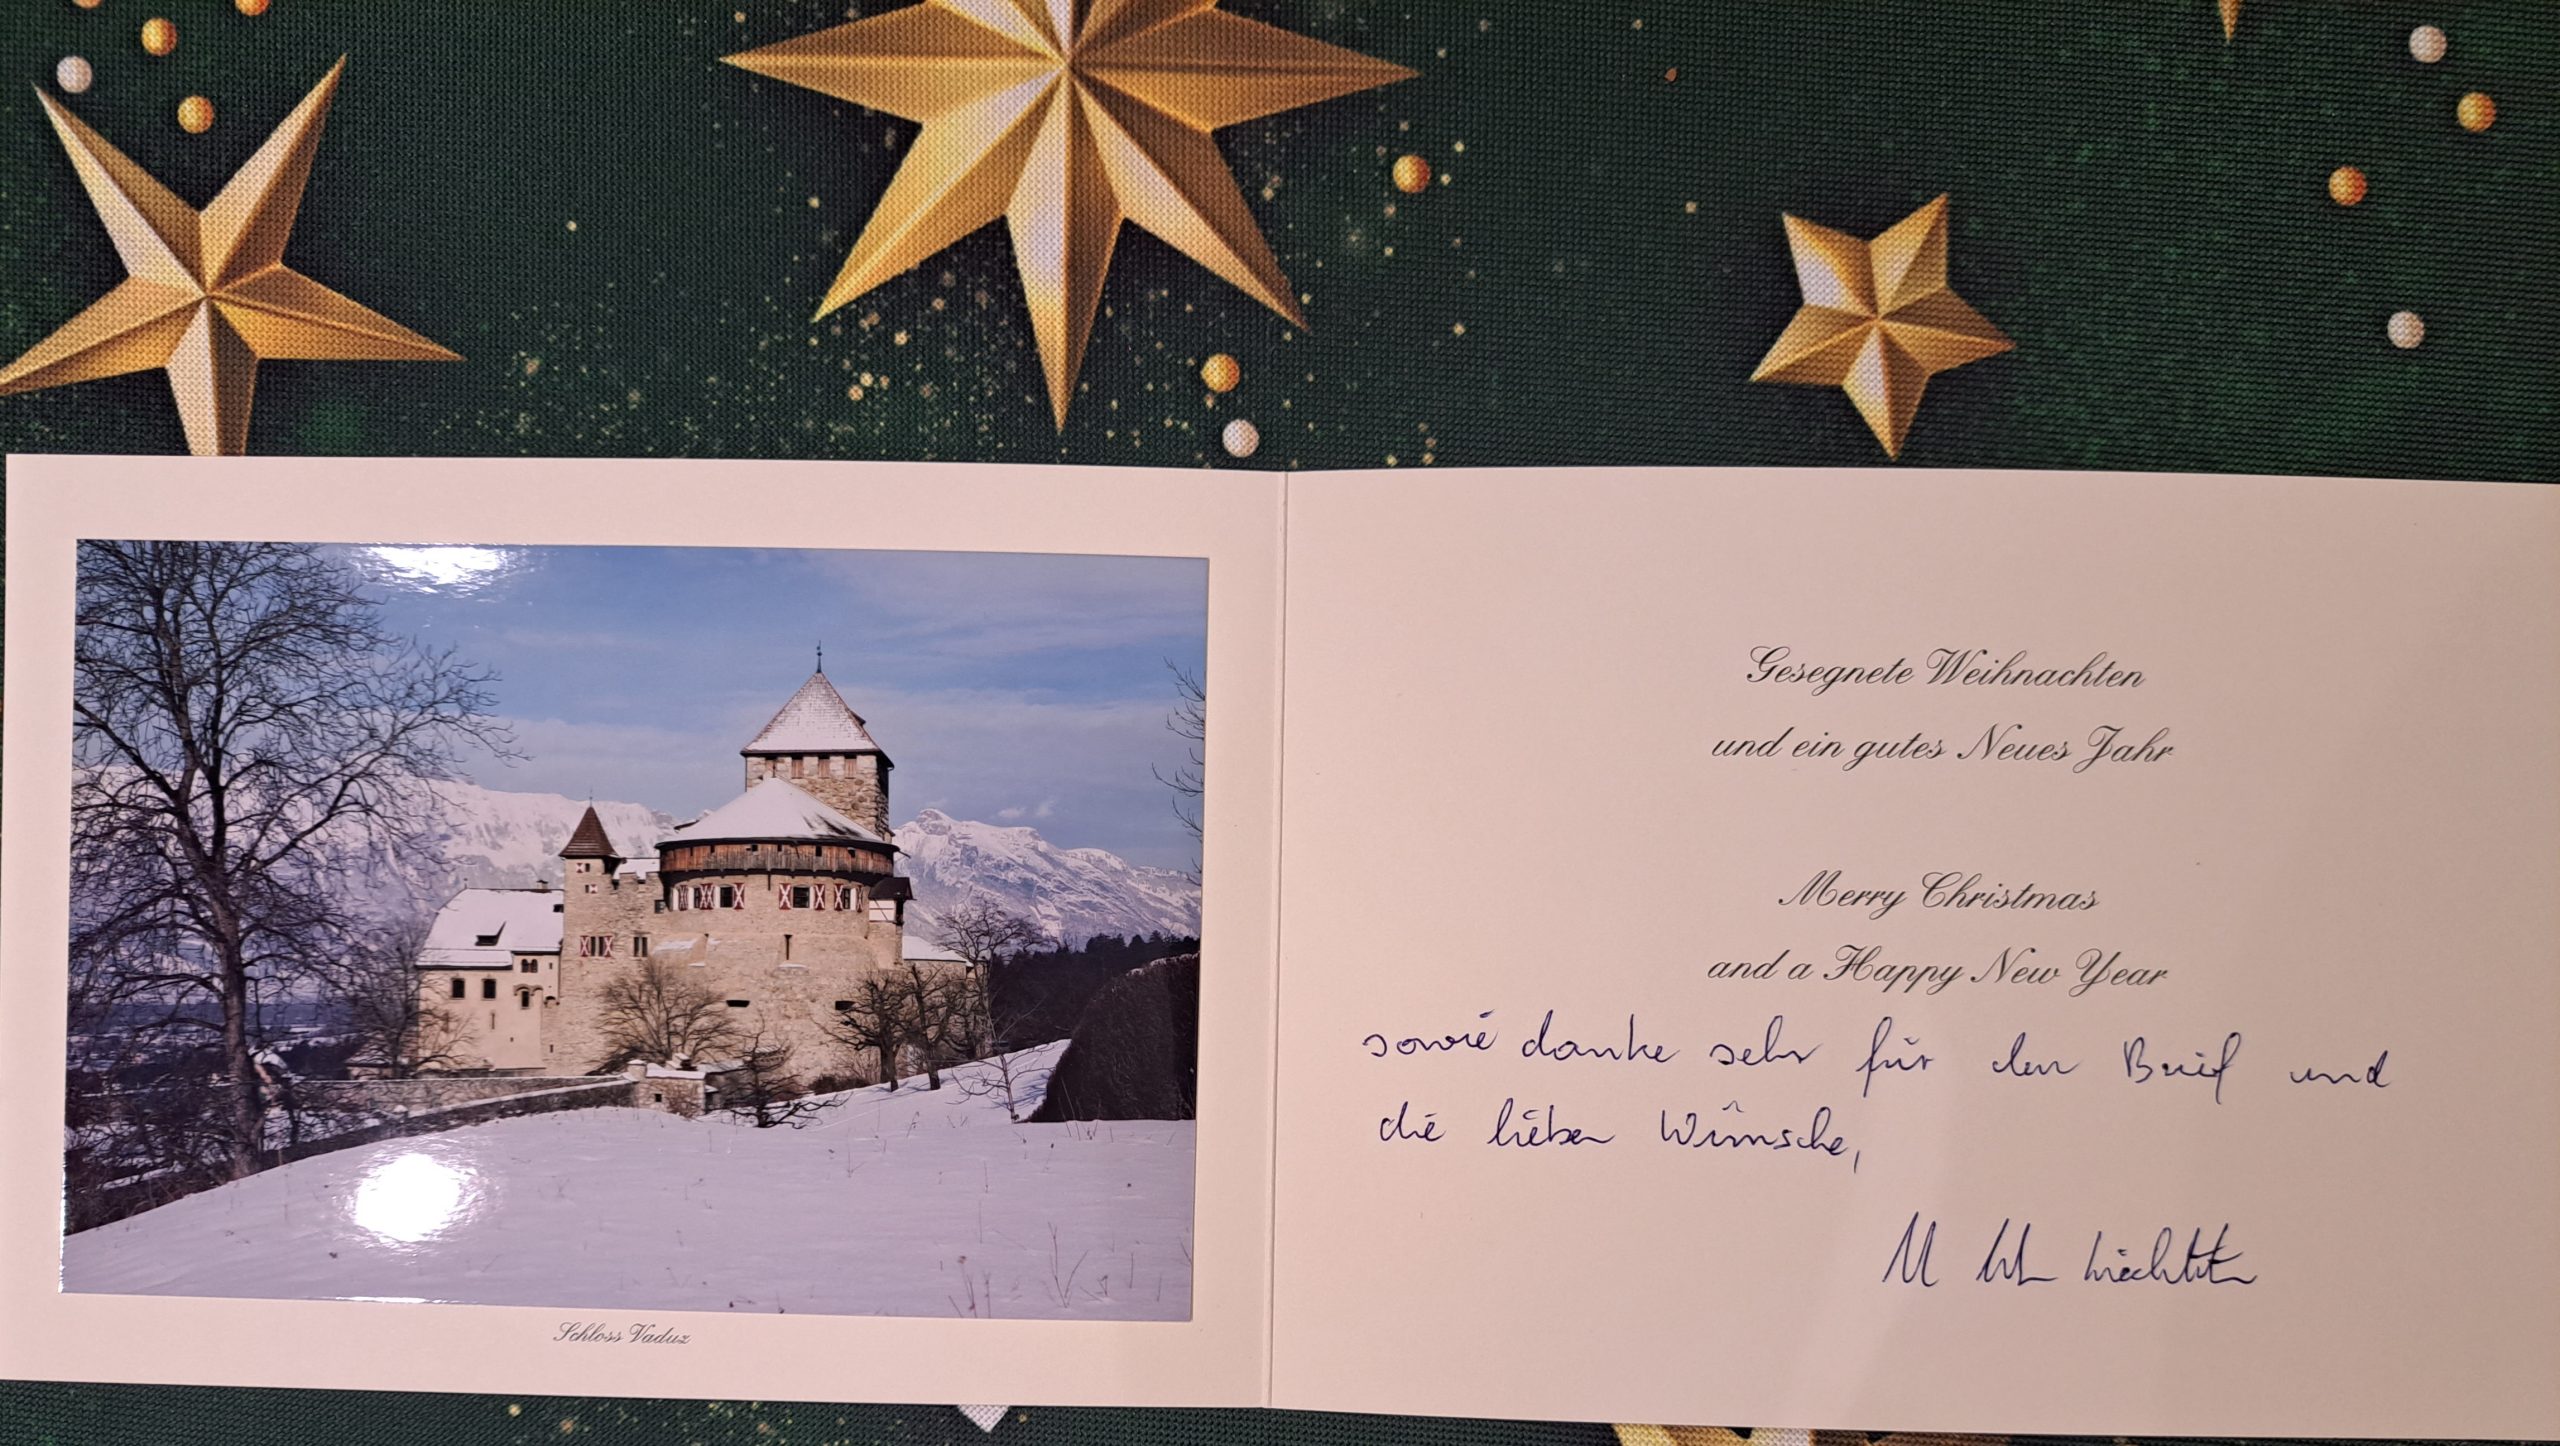 Schloss Vaduz
Gesegnete Weihnachten
und ein gutes Neues Jahr
Merry Christmas
and a Happy New Year
sowie danke sehr für den Brief und
die lieben Wünsche,